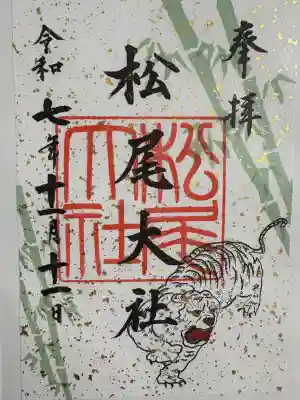 奉拝
松尾大社
令和七年十一月十一日
松尾大社